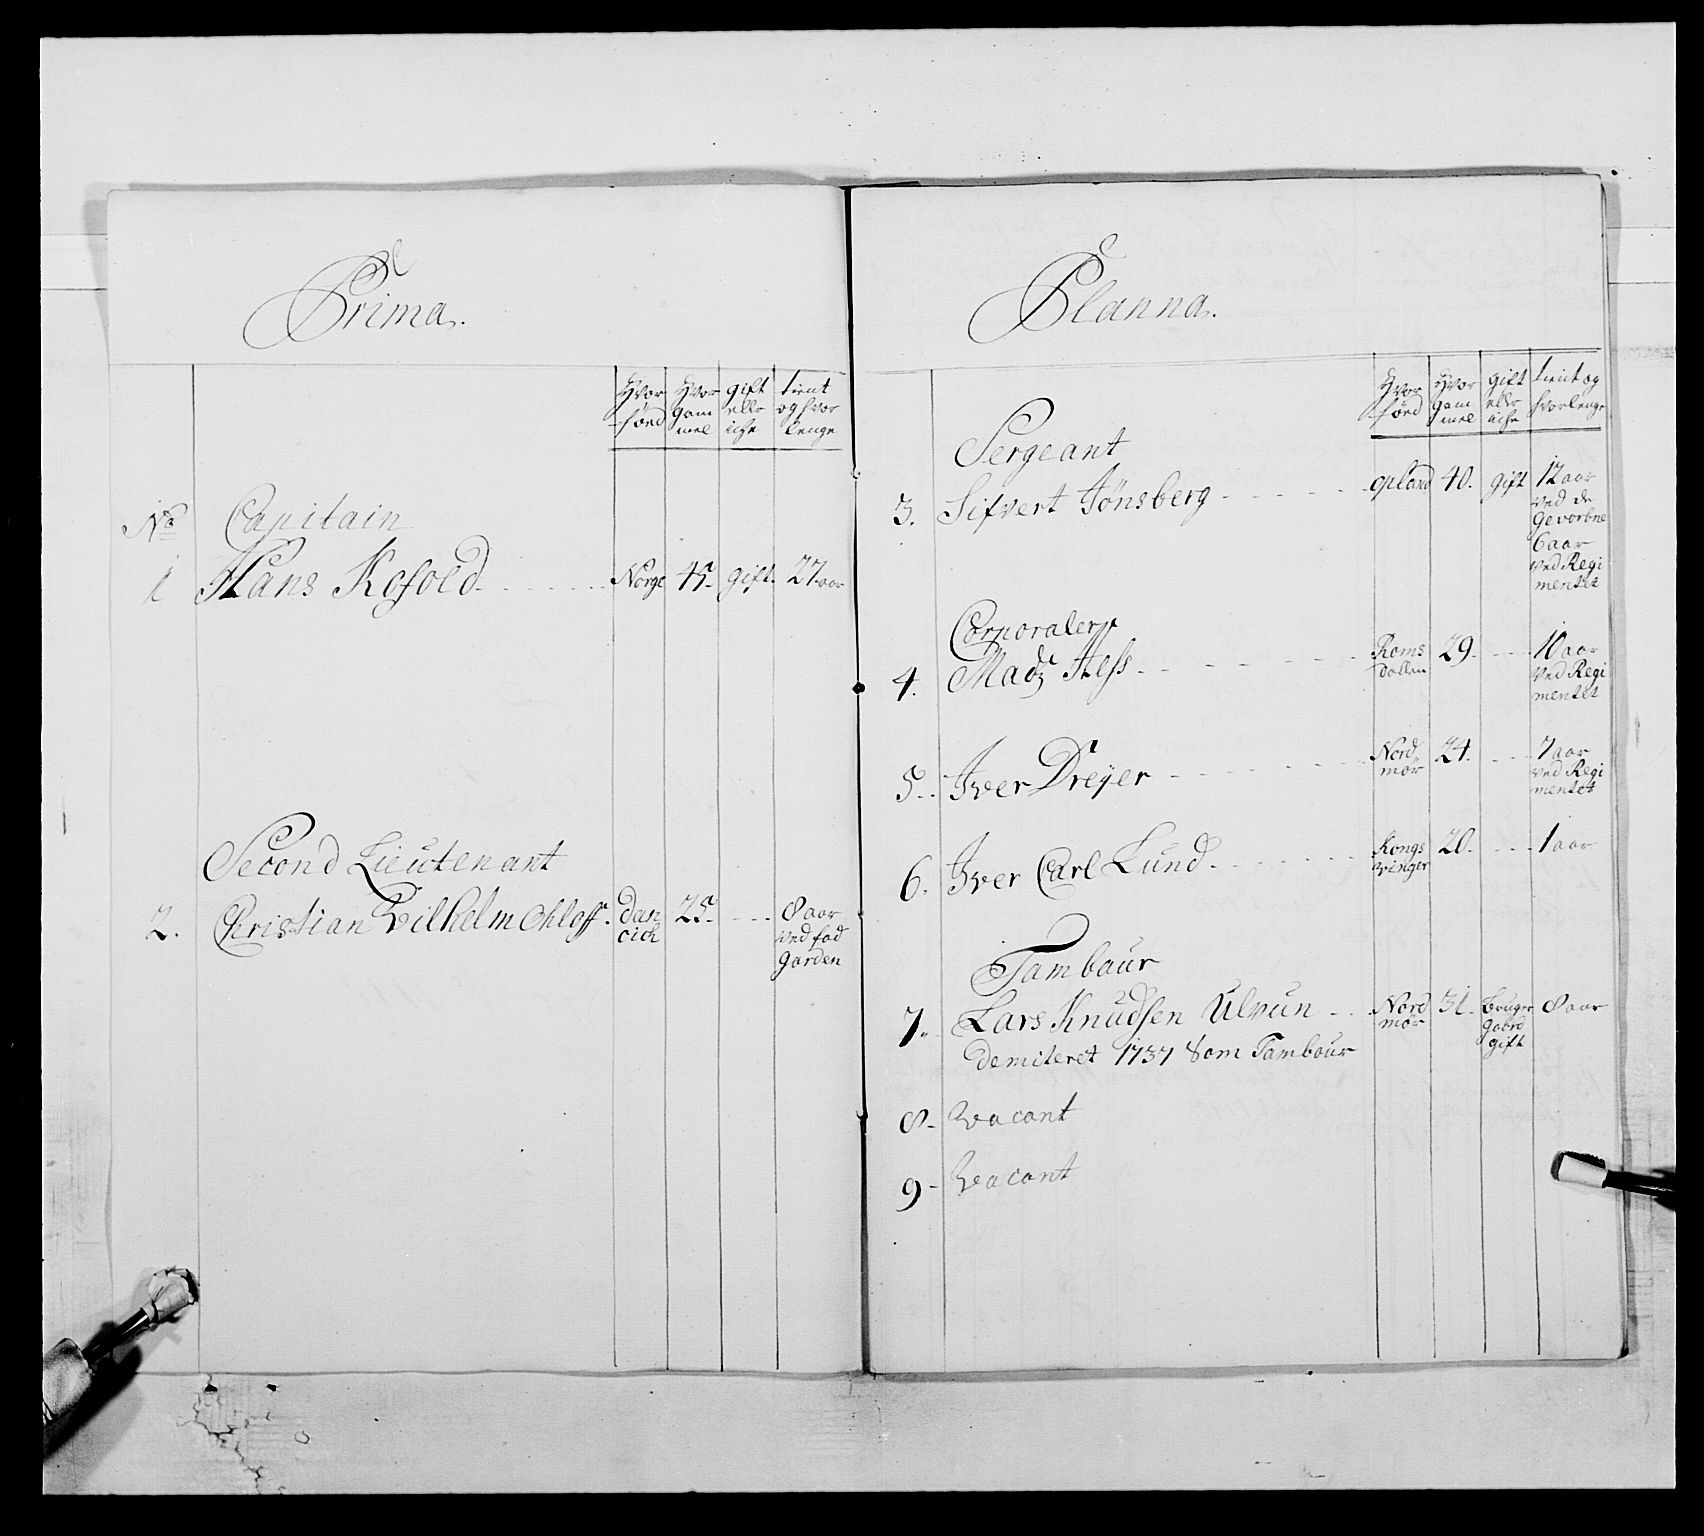 Prima.
Hvor föed
Hvor gam mel
gift ellr icke
tient og hvor lenge
No Capitain
1 Hans Kofoed. Norge 45. gift. 27 aar
Second Lieutenant
2. Christian Vilhelm Ohloff. dan cich 25. - - - 8 aar
ved fod
garden
Planna.
Hvor föed
Hvor gam mel
gift ellr icke
tient og hvorlenge
Sergeant
3. Sifvert Jönsberg - - - - - opland 40. gift 12 aar
ved de
gevorbne
6 aar
ved Regi
mentet
Corporaler
4. Madz - - - - - Roms dallen 29. - - - 10 aar
ved Regi
mentet
5. Iver Dreyer - - - - - Nord mör 24. - - - 7 aar
ved Regi
mentet
6. Iver Carl Lund. - - - - - Kongs vinger 20. - - - 1 aar
Tambour
7. Lars Knudsen Ulvun - - Nord mör 31. bruger gaard gift 8 aar
demiteret 1737 Som Tambour
8 - vacant
9 - vacant